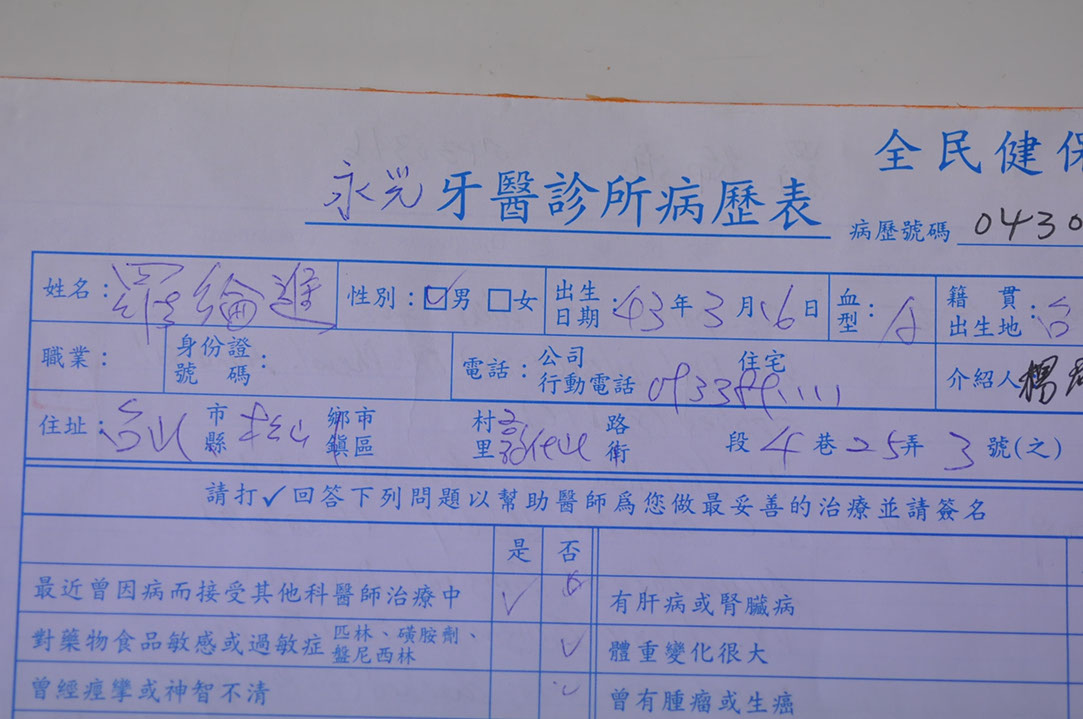 全民健保
永光牙醫診所病歷表
病歷號碼 0430
姓名：羅綸進 性別：☑男 □女 出生日期：43年3月16日 血型：A 籍貫出生地：台
職業： 身份證號碼： 電話：公司 住宅 行動電話 介紹人 楊
住址：台北市縣 松山鄉鎮市區 村里 路街 段 4巷25弄3號(之)
請打✓回答下列問題以幫助醫師爲您做最妥善的治療並請簽名
是 否
最近曾因病而接受其他科醫師治療中 ✓ 有肝病或腎臟病
對藥物食品敏感或過敏症 匹林、磺胺劑、盤尼西林 ✓ 體重變化很大
曾經痙攣或神智不清 ✓ 曾有腫瘤或生癌